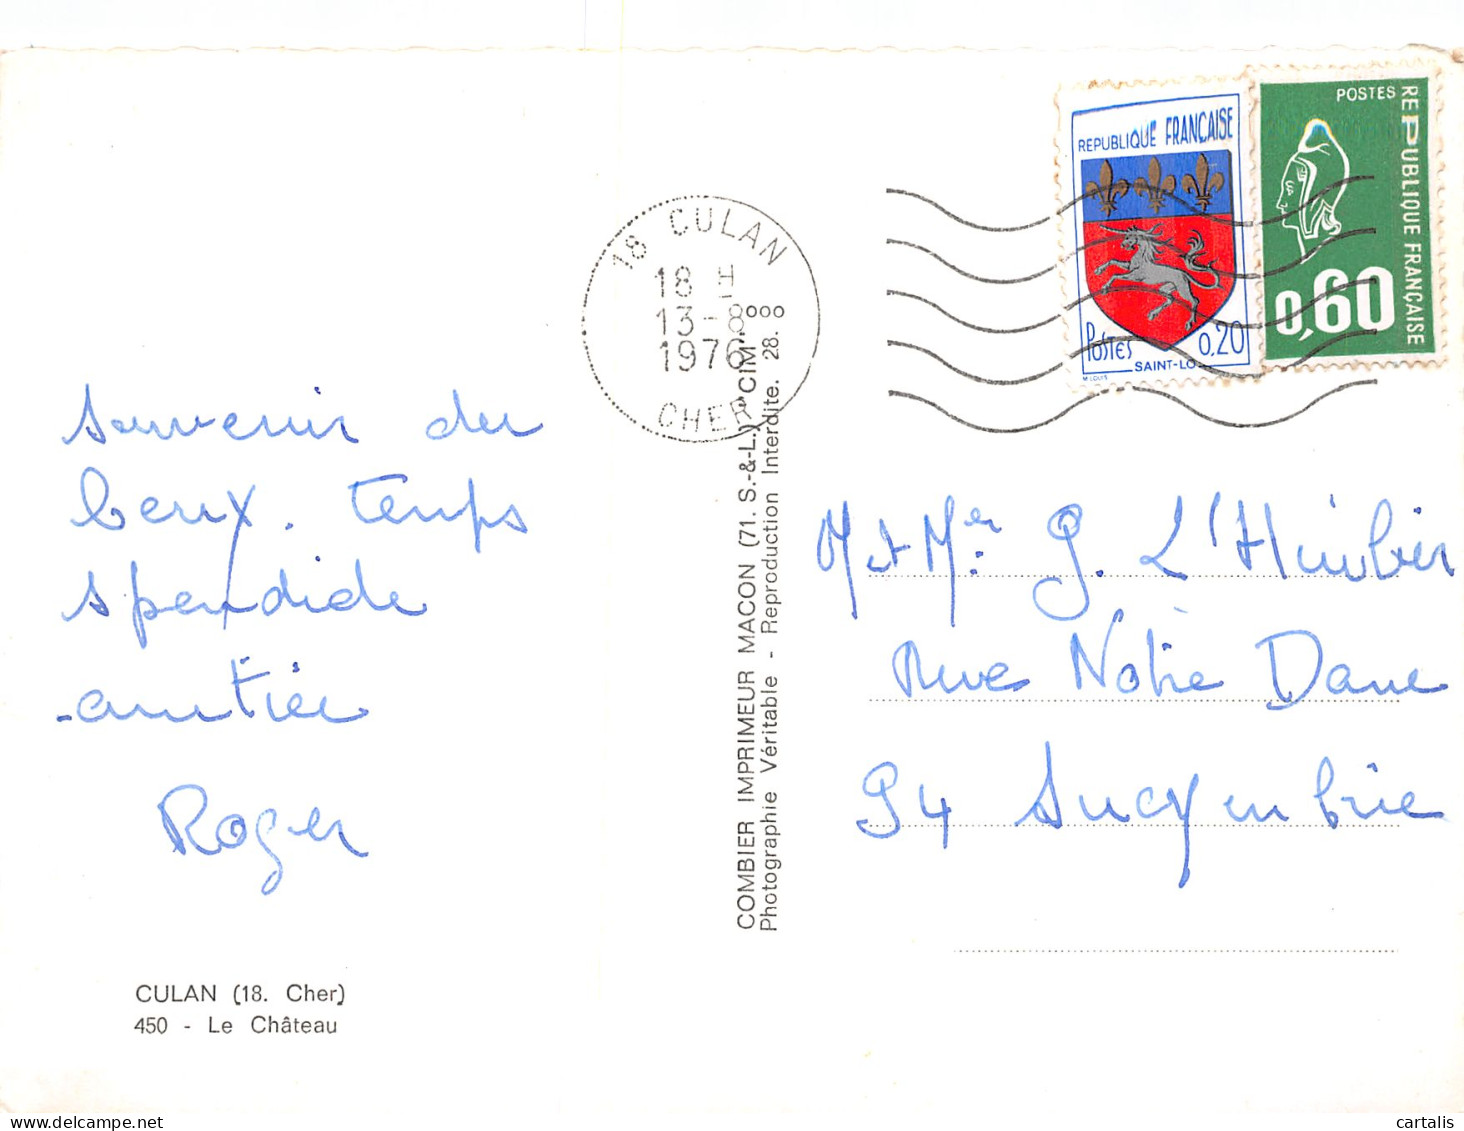 18 CULAN
18 H
13-8
1976
CHER
REPUBLIQUE FRANÇAISE
POSTES 0,20
SAINT-LO
POSTES
REPUBLIQUE FRANÇAISE
0,60
Souvenir du
beux. temps
spendide
amitiée
Roger
CULAN (18. Cher)
450 - Le Château
COMBIER IMPRIMEUR MACON (71. S.-&-L.) "CIM"
Photographie Véritable - Reproduction Interdite. 28.
M et Mer G. L'Huibier
Rue Notre Dame
94 Sucy en brie
cartalis